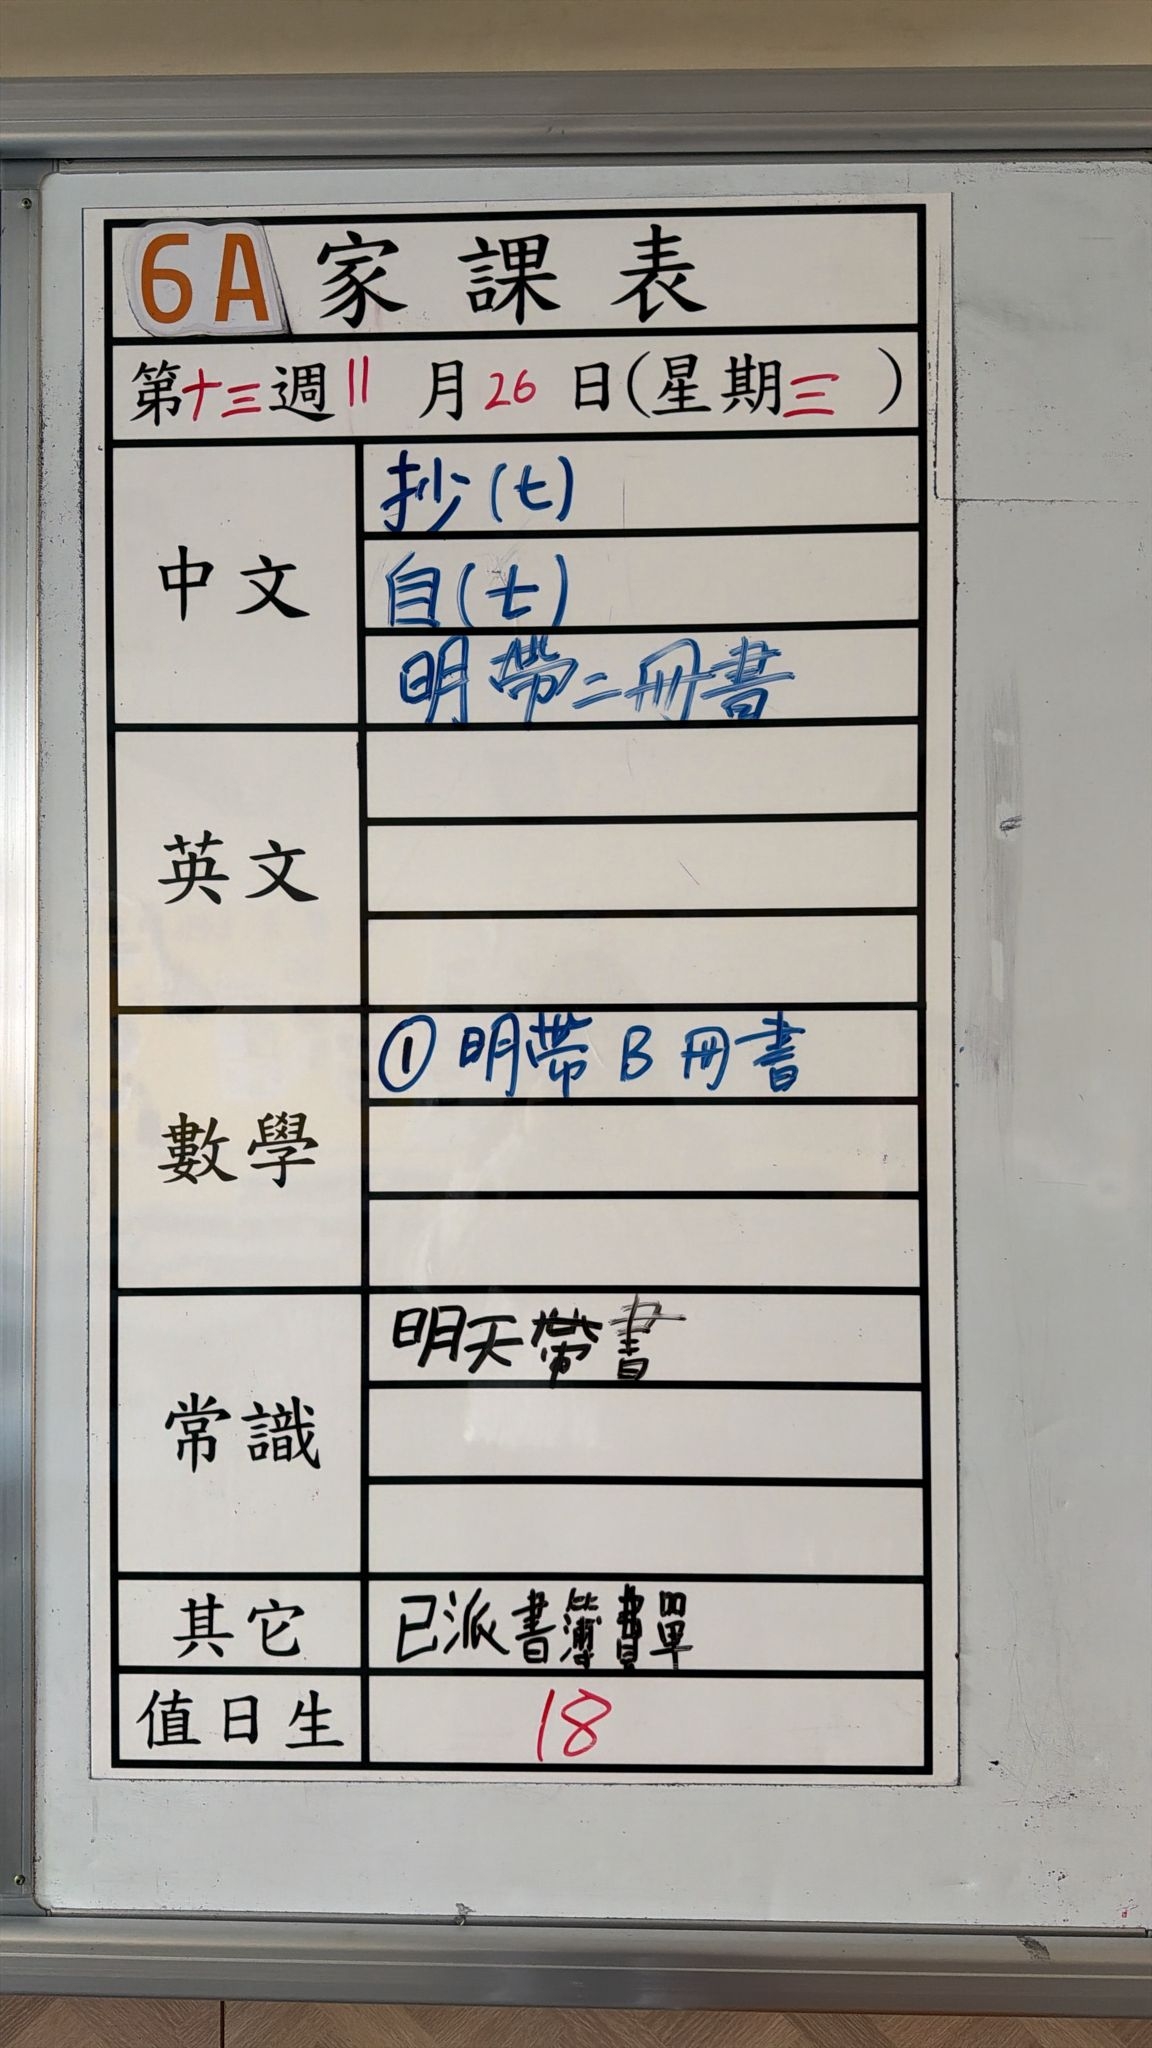 6A 家課表
第十三週 11 月 26 日(星期三)
中文
抄(七)
自(七)
明帶二冊書
英文
數學
① 明帶 B 冊書
常識
明天帶書
其它
已派書簿費單
值日生
18